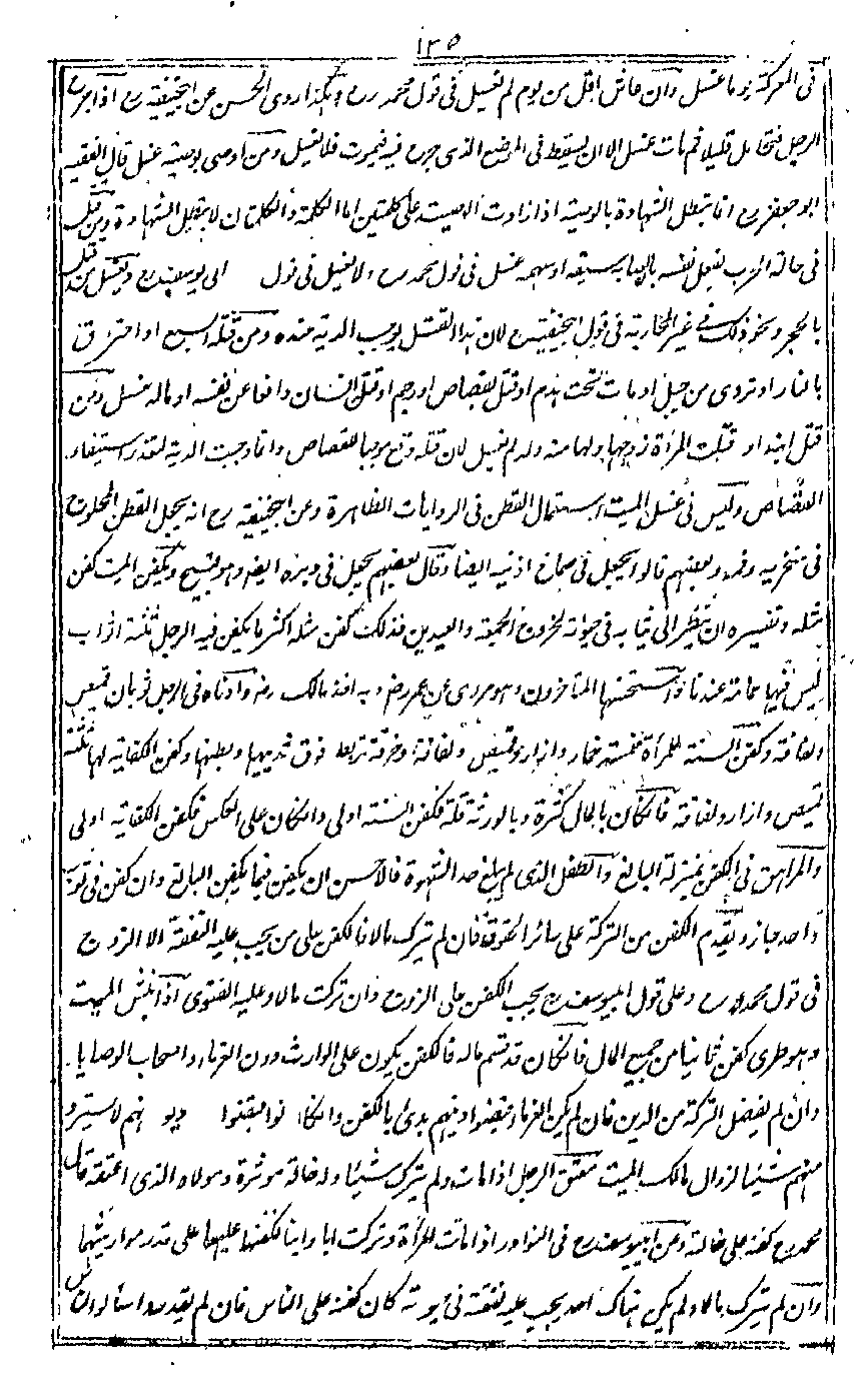 ١٣٥
فى المعركة يوما غسل وان عاش اقل من يوم لم يغسل فى قول محمد رح وهكذا روى الحسن عن ابيحنيفة رح اذا جرح
الرجل فتحامل قليلا ثم مات غسل الا ان يسقط فى الموضع الذى جرح فيه فيموت فلا يغسل ومن اوصى بوصية غسل قال الفقيه
ابو جعفر رح انما تبطل الشهادة بالوصية اذا زادت الوصية على كلمتين اما الكلمة والكلمتان لا تبطل الشهادة ومن قتل
فى حالة الحرب بفعل نفسه بان اصابه سيفه او سهمه غسل فى قول محمد رح ولا يغسل فى قول ابى يوسف رح ويغسل من قتل
بالحجر ونحو ذلك فى غير المحاربة فى قول ابيحنيفة رح لان هذا القتل يوجب الدية عنده ومن قتله السبع او احترق
بالنار او تردى من جبل او مات تحت هدم او قتل بقصاص او رجم او قتل انسان دافعا عن نفسه او ماله يغسل ومن
قتل ابنه او قتلت المرأة زوجها ولها منه ولد لم يغسل لان قتله وقع موجبا للقصاص وانما وجبت الدية لتعذر استيفاء
القصاص وليس فى غسل الميت استعمال القطن فى الروايات الظاهرة وعن ابيحنيفة رح انه يجعل القطن المحلوج
فى منخريه وفمه وبعضهم قالوا يجعل فى صماخ اذنيه ايضا وقال بعضهم يجعل فى دبره ايضا وهو قبيح ويكفن الميت كفن
مثله وتفسيره ان ينظر الى ثيابه فى حيوته لخروج الجمعة والعيدين فذلك كفن مثله اكثر ما يكفن فيه الرجل ثلثة اثواب
ليس فيها عمامة عندنا واستحسنها المتأخرون وهو مروى عن عمر رض وبه اخذ مالك رض وادناه فى الرجل ثوبان قميص
ولفافة وكفن السنة للمرأة خمسة خمار وازار وقميص ولفافة وخرقة تربط فوق ثدييها وبطنها وكفن الكفاية لها ثلثة
قميص وازار ولفافة فان كان بالمال كثرة وبالورثة قلة فكفن السنة اولى وان كان على العكس فكفن الكفاية اولى
والمراهق فى الكفن بمنزلة البالغ والطفل الذى لم يبلغ حد الشهوة فالاحسن ان يكفن فيما يكفن البالغ وان كفن فى ثوب
واحد جاز ويقدم الكفن من التركة على سائر الحقوق فان لم يترك مالا فالكفن على من يجب عليه النفقة الا الزوج
فى قول محمد رح وعلى قول ابيوسف رح يجب الكفن على الزوج وان تركت مالا وعليه الفتوى اذا نبش الميت
وهو طرى كفن ثانيا من جميع المال فان كان قد قسم ماله فالكفن يكون على الوارث دون الغرماء واصحاب الوصايا
وان لم يفضل التركة من الدين فان لم يكن الغرماء قبضوا ديونهم بدئ بالكفن وان كانوا قبضوا ديونهم لا يسترد
منهم شيئا لزوال مالك الميت معتق الرجل اذا مات ولم يترك شيئا وله خالة موثرة ومولاه الذى اعتقه قال
محمد رح كفنه على خالته وعن ابيوسف رح فى النوادر اذا ماتت المرأة وتركت ابا وابنا كفنها عليهما على قدر مواريثهما
وان لم يترك مالا ولم يكن هناك احد يجب عليه نفقته فى حيوته كان كفنه على الناس فان لم يقدروا سألوا الناس